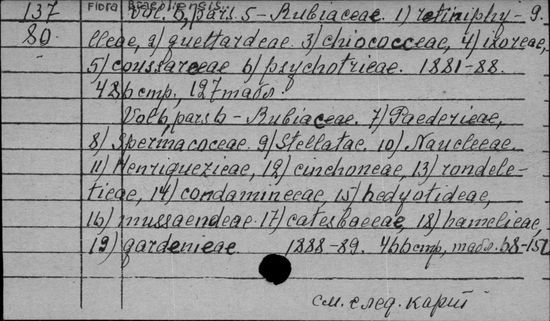 137 Flora Brasoliensis.
Vol. 6, pars. 5 - Rubiaceae. 1) retiniphy- 9.
80 lleae, 2) guettardeae. 3) chiococceae, 4) ixoreae,
5) coussareeae 6) psychotrieae. 1881-88.
486 стр., 127 табл.
Vol 6, pars 6 - Rubiaceae. 7) Paederieae,
8) Spermacoceae. 9) Stellatae. 10) Naucleeae.
11) Henriquezieae, 12) cinchoneae, 13) rondele-
tieae, 14) condamineeae, 15) hedyotideae,
16) mussaendeae. 17) catesbaeeae, 18) hamelieae,
19) gardenieae 1888-89. 466 стр, табл. 68-151
см. след. карт